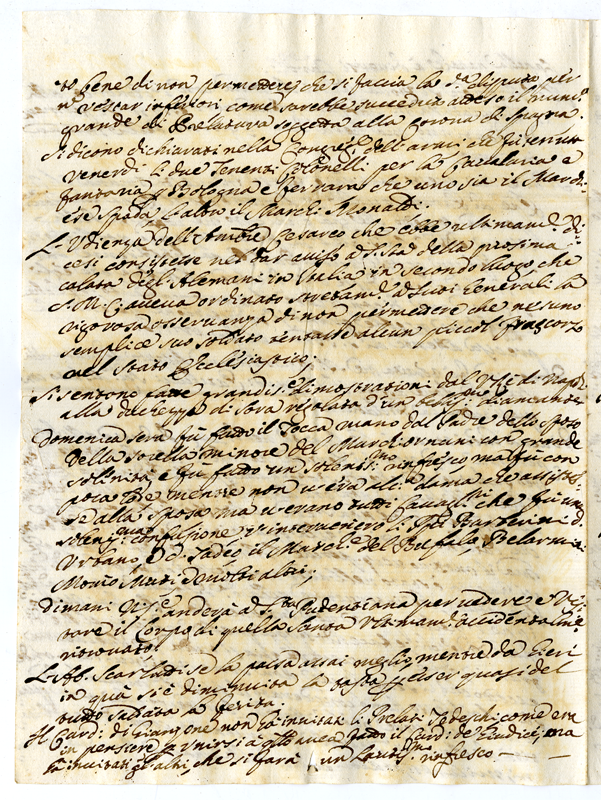 bene di non permettere che si faccia la d.a disputa per
restar inferiori come sarebbe succeduto adesso il num.o
grande di Prelatura soggetta alla Corona di Spagna.
Si dicono dichiarati nella Congreg.e dell'armi che fù tenuta
venerdì li due Tenenti Colonelli per la Cavalaria e
fantaria p Bologna e Ferrara che uno sia il March
ese Spada l'altro il March: Monaldi:
L'Udienza dell'Amb.re Cesareo che ebbe ultimam.e di
cesi consistere nel dar aviso a S. Sta della prossima
calata degl'Alemani in Italia in secondo luogo che
S. M. C. aveva ordinato strettam.e a suoi Generali la
rigorosa osservanza di non permettere che nesuno
semplice suo soldato tentasse alcun piccol
nel Stato Ecclesiastico;
Si sentono fatte grandis.e dimostrationi dal V. Rè di Nap:
alla duchessa di Sora regalata d'un
Domenica sera fù fatto il Tocca mano dal Padre dello sposo
della sorella minore del March: ornani con grande
solinità, e fù fatto un solenis.mo rinfresco ma fù con
poca mentre non v'era altra dama che assistes
se alla sposa ma v'erano tutti Cavag.ri che fù un
confusione, v'intervenero li Barberini d.
Urbano, D. Tadeo il March.e del Bufalo, Belarmin
Mutie molti altri;
Dimani N. S.e anderà a S.ta Pudentiana per vedere e visi
tare il Corpo di quella Santa ultimam.e accidentalm.e
ritrovato
L'Abb. Scarlati se la passa assai meglio mentre da Hieri
in quà s'è diminuita la tasta p esser quasi del
tutto saldata la ferita.
Il Card: di Gianzone non hà invitati li Prelati Tedeschi come era
in pensiere p unirsi a q.to avea fatto il Card: de Giudici, ma
hà invitati gl'altri, che si farà un Lautis.mo rinfresco